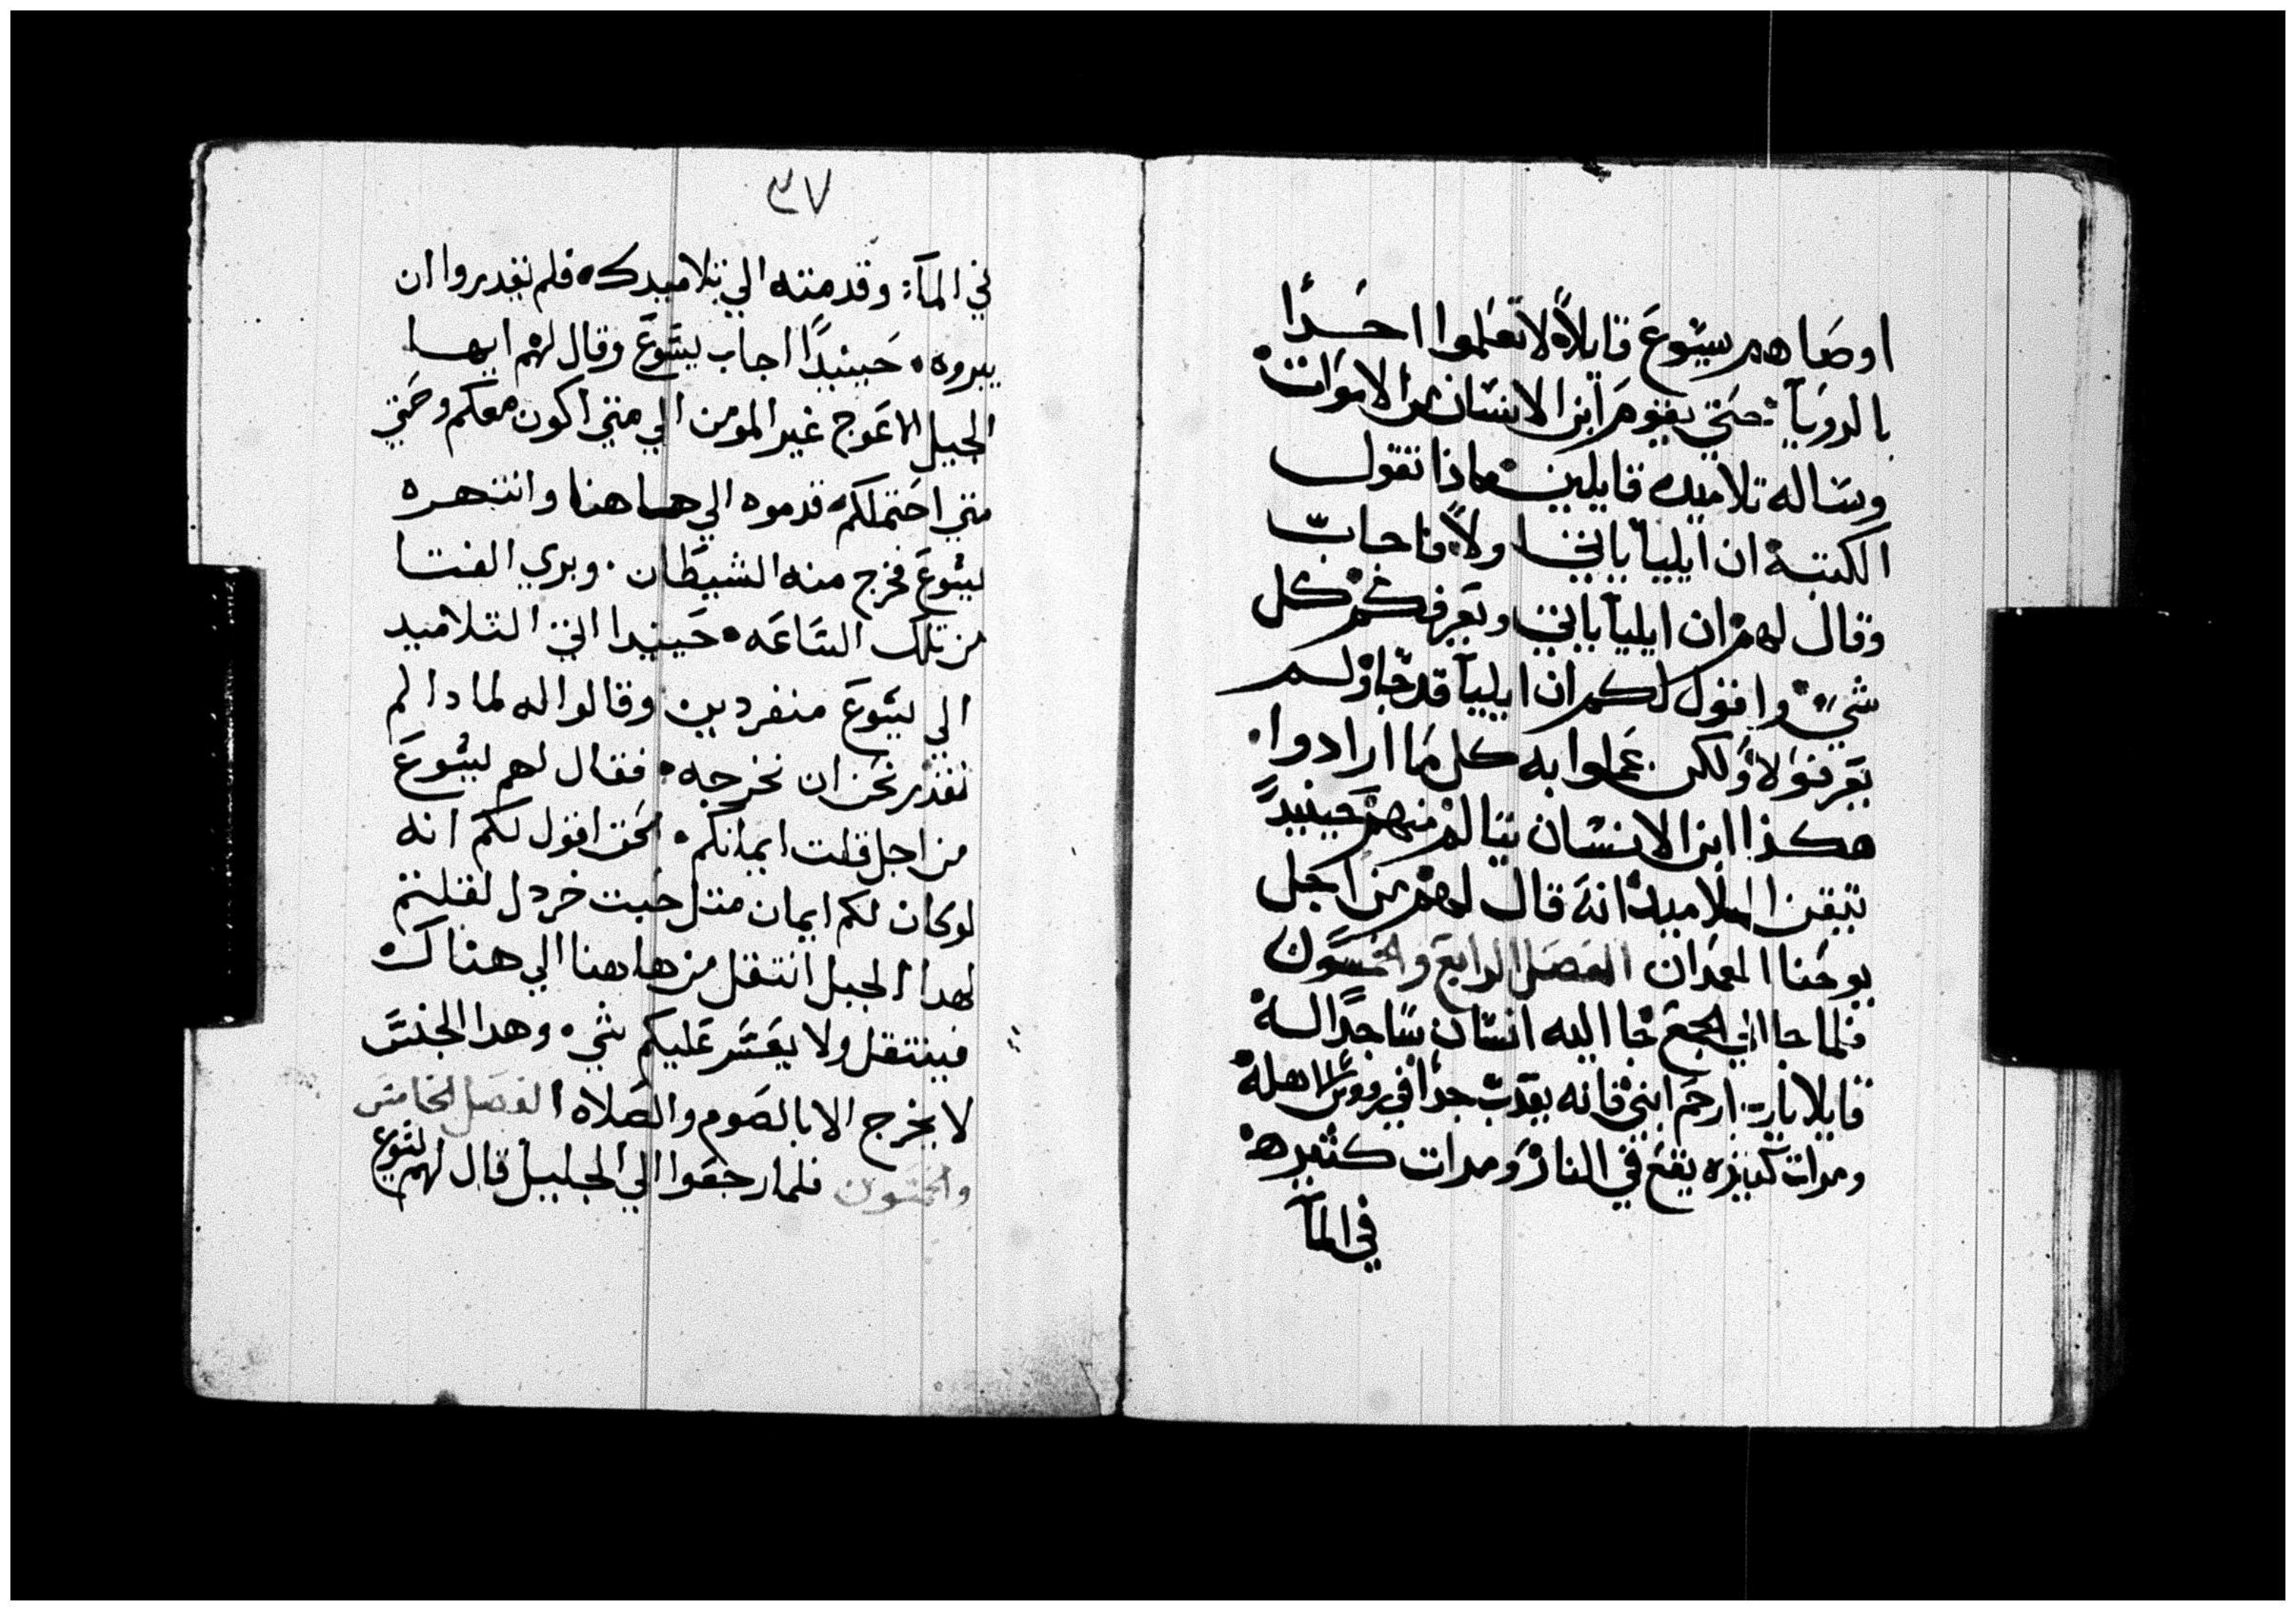 اوصَاهم يسَوعَ قايلاً لا تعَلموا احَدًا
بالروياَ حتي يقوم ابن الانسَان من الاموَات
وسَاله تلاميده قايلين ماذا تقول
الكتبة ان ايليا ياتي اولاً فاجاب
وقال لهم ان ايليا ياتي ويعَرفكم كل
شي واقول لكم ان ايليا قد جا ولم
يعَرفوه ولكن عَملوا به كل مَا ارادوا
هكذا ابن الانسَان يتالم منهم حَينيدً
تيقن التلاميد انه قال لهم من اجل
يوحَنا المعمَدان الفصَل الرابعَ والخمسَون
فلما جا الي الجمعَ جا اليه انسَان سَاجدًا له
قايلا يارب ارحَم ابني فانه يعَدب جدًا في رووس الاهله
ومرات كثيره يقعَ في النار ومرات كثيره
في الماَ
٣٧
في الماَ وقدمته الي تلاميدك فلم يقدروا ان
يبروه حَينيدًا اجاب يسَوعَ وقال لهم ايها
الجيل الاعَوج غير المومن الي متي اكون معكم وحَتي
متي احَتملكم قدموه الي هاهنا وانتهره
يسَوعَ فخرج منه الشيطَان وبري الفتا
من تلك السَاعَه حَينيدا اتي التلاميد
الي يسَوعَ منفردين وقالوا له لمادا لم
نقدر نحَن ان نخرجه فقال لهم يسَوعَ
من اجل قلت ايمانكم الحَق اقول لكم انه
لوكان لكم ايمان متل حَبت خردل لقلتم
لهدا الجبل انتقل من هاهنا الي هناك
فينتقل ولا يعَسَر عَليكم شي وهدا الجنسَ
لا يخرج الا بالصَوم والصَلاه الفصَل الخامسَ
والخمسَون فلما رجعَوا الي الجليل قال لهم يسَوعَ